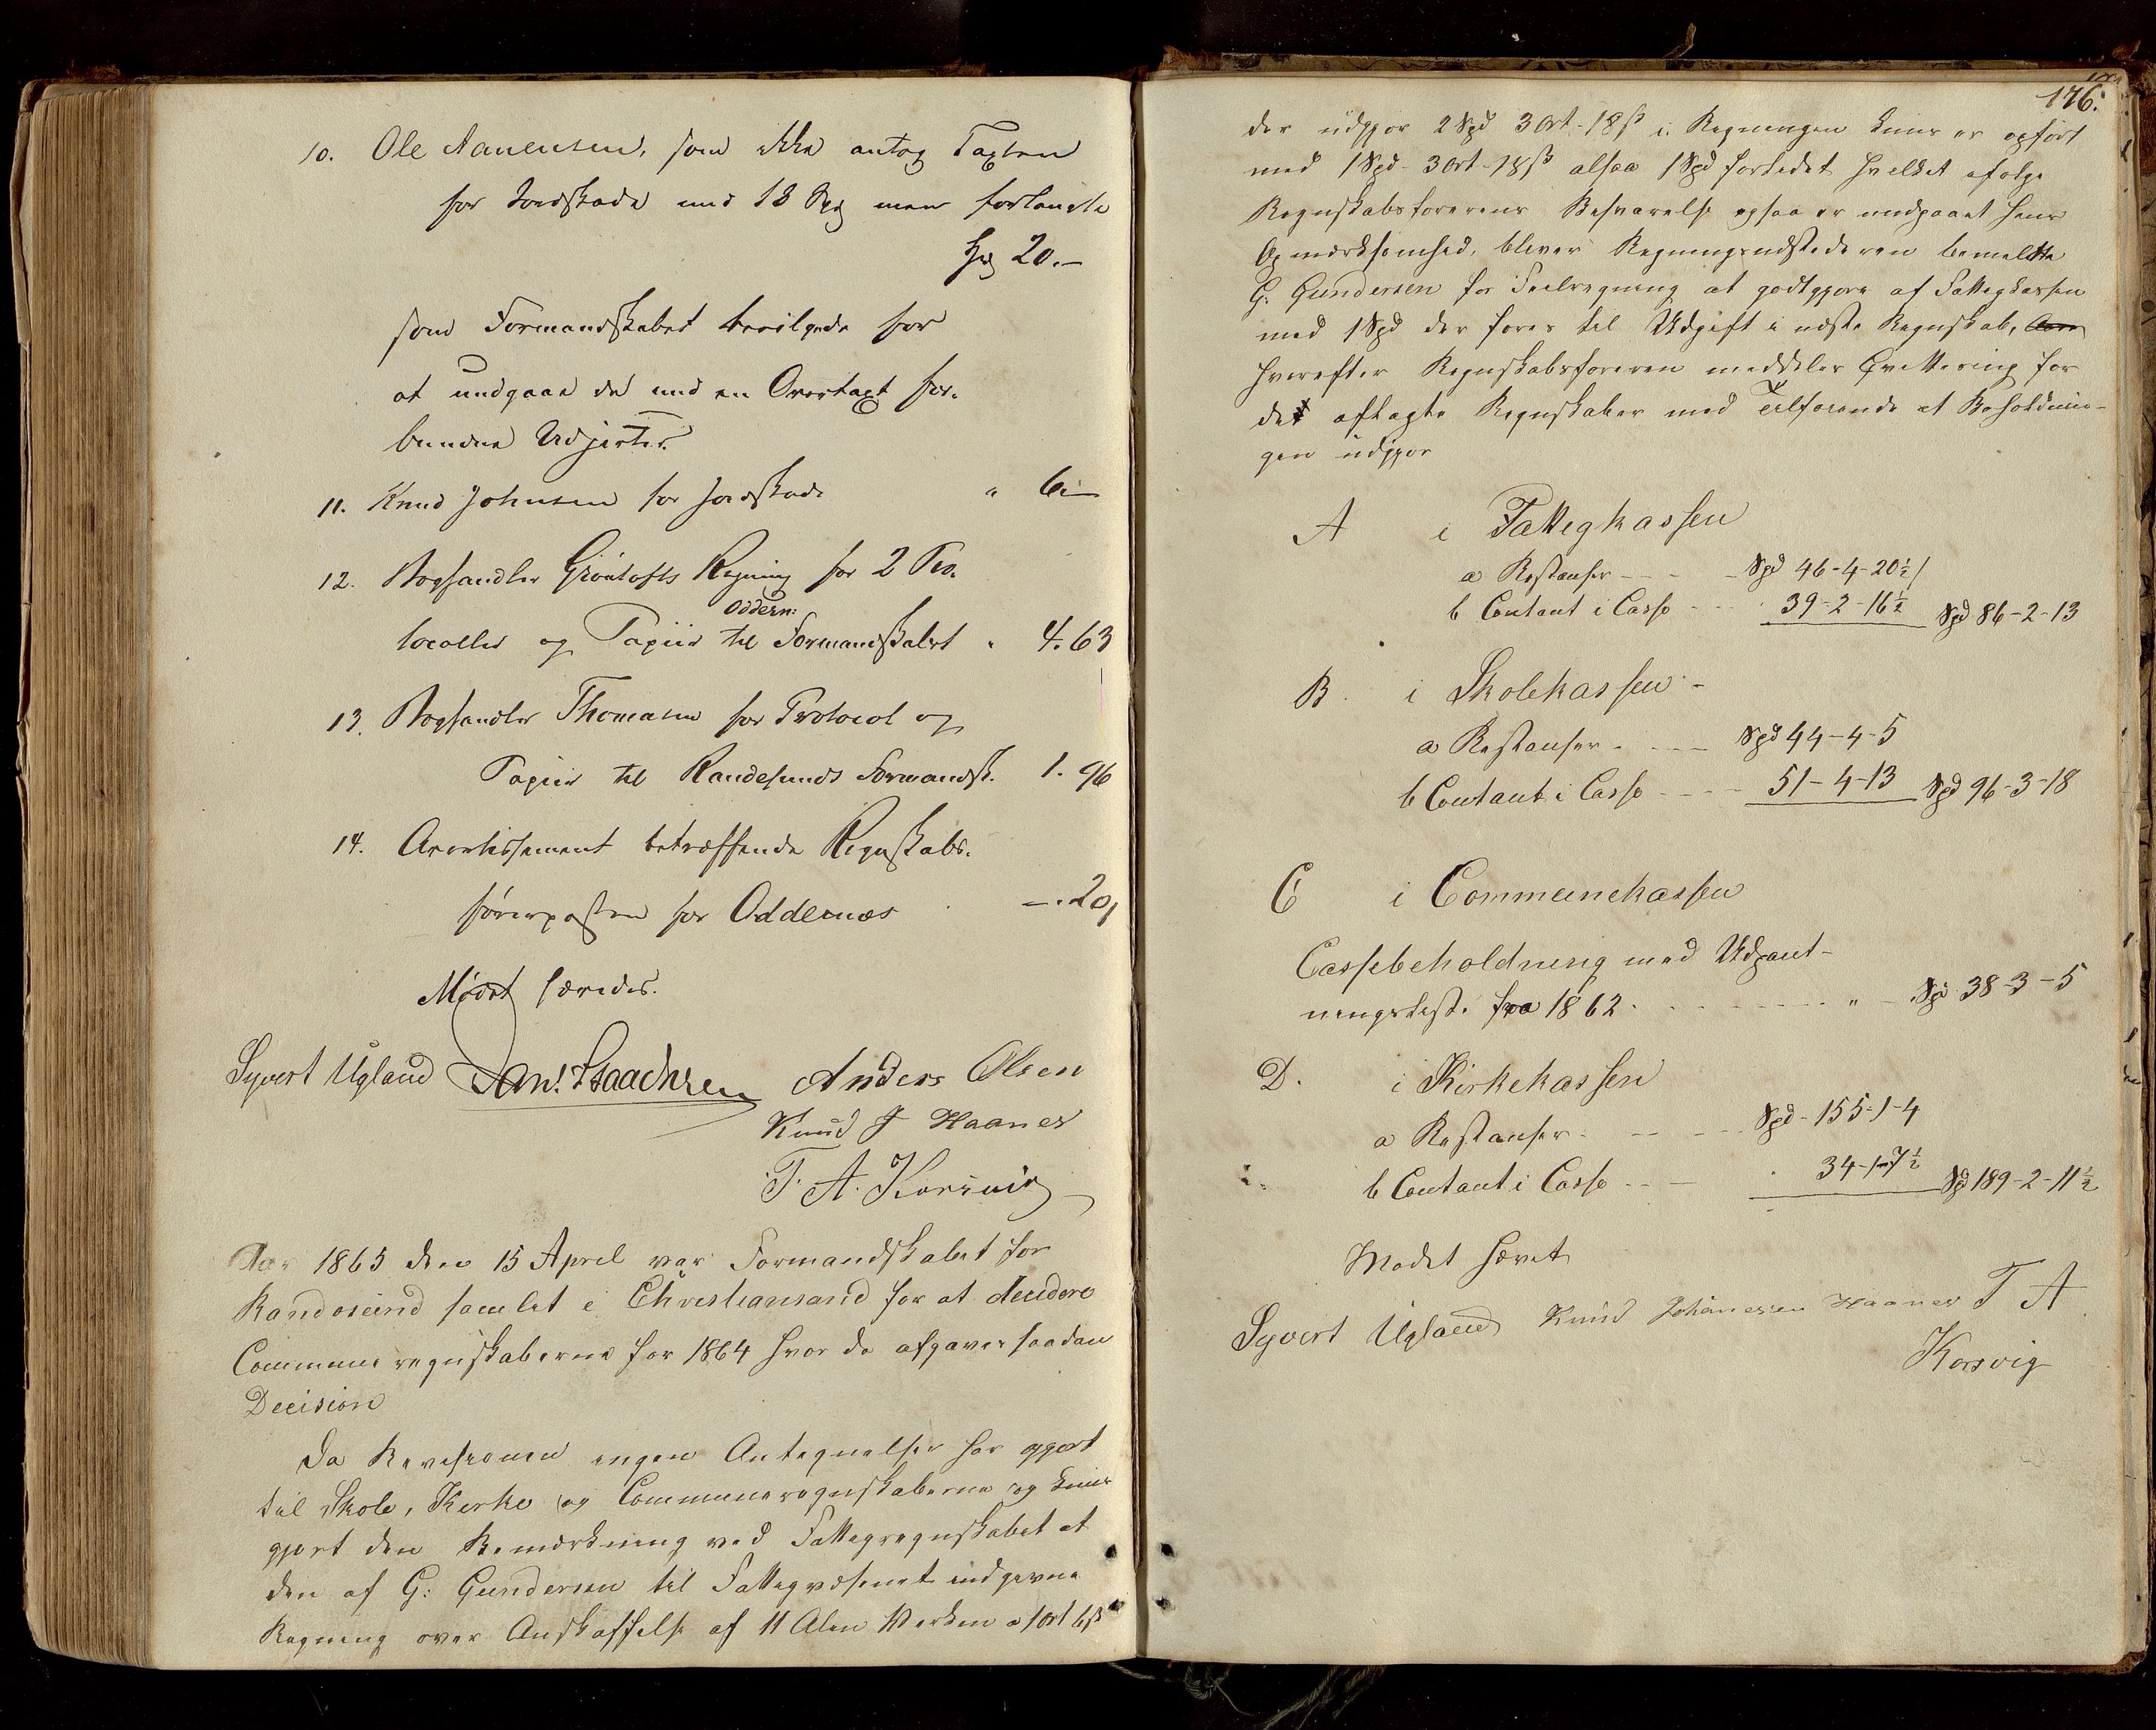 10. Ole Aanensen, som ikke antog Taxten
for Jordskade med 18 Spd men forlangte
Spd 20.—
som Formandskabet bevilgede for
at undgaae de med en Overtaxt for-
bundne Udgifter.
11. Knud Johnsen for Jordskade " 6.—
12. Boghandler Grøntofts Regning for 2 Pro-
Oddern:
tocoller og Papiir til Formandskabet " 4. 63
13. Boghandler Thomasen for Protocol og
Papiir til Randesunds Formandsk. 1. 96
14. Avertissement betræffende Regnskabs-
førerposten for Oddernæs —. 20
Mødet hævedes.
Syvert Ugland Dan. Isaachsen Anders Olsen
Knud J Haanes
T. A. Korsvig
Aar 1865 den 15 April var Formandskabet for
Randøsund samlet i Christiansand for at decidere
Communeregnskaberne for 1864 hvor da afgaves saadan
Decision
Da Revisionen ingen Antegnelser har gjort
til Skole, Kirke og Communeregnskaberne og kun
gjort den Bemærkning ved Fattigregnskabet at
den af G: Gundersen til Fattigvæsenet indgivne
Regning over Anskaffelse af 11 Alen Værken a 1 Ort 6 s
176.
der udgjør 2 Spd 3 Ort - 18 s i Regningen kun er opført
med 1 Spd - 3 Ort - 18 s altsaa 1 Spd forlidet hvilket ifølge
Regnskabsførerens Besvarelse ogsaa er undgaaet hans
Opmærksomhed, bliver Regningsudstederen bemeldte
G. Gundersen for Feilregning at godtgjøre af Fattigkassen
med 1 Spd der føres til Udgift i næste Regnskab,
hvorefter Regnskabsføreren meddeles Qvittering for
det aflagte Regnskaber med Tilføiende at Beholdnin-
gen udgjør
A i Fattigkassen
a Restanser - - - - Spd 46-4-20½
b Contant i Casse - - - 39-2-16½ Spd 86-2-13
B. i Skolekassen -
a Restanser - - - - Spd 44-4-5
b Contant i Casse - - - - 51-4-13 Spd 96-3-18
C i Communekassen
Cassebeholdning med Udpant-
ningsrest. fra 1862 - - - - - - " - Spd 38-3-5
D. i Kirkekassen
a Restanser - - - - Spd - 155-1-4
b Contant i Casse - - - 34-1-7½ Spd 189-2-11½
Mødet hævet
Syvert Ugland Knud Johanesen Haanes T A
Korsvig